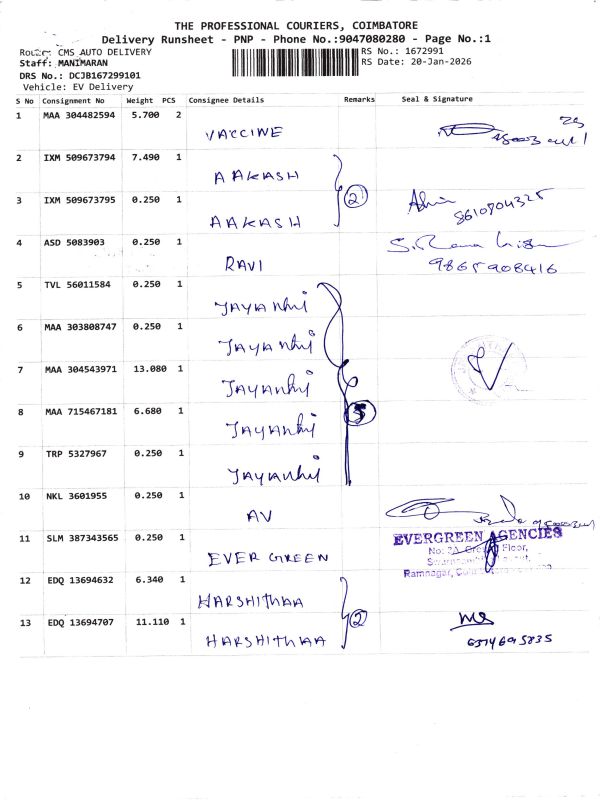 THE PROFESSIONAL COURIERS, COIMBATORE
Delivery Runsheet - PNP - Phone No.:9047080280 - Page No.:1
Route: CMS AUTO DELIVERY
RS No.: 1672991
Staff: MANIMARAN
RS Date: 20-Jan-2026
DRS No.: DCJB167299101
Vehicle: EV Delivery
S No Consignment No Weight PCS Consignee Details Remarks Seal & Signature
1 MAA 304482594 5.700 2 VACCINE
2 IXM 509673794 7.490 1 AAKASH
2
3 IXM 509673795 0.250 1 AAKASH
8610904325
4 ASD 5083903 0.250 1 RAVI
9865908416
5 TVL 56011584 0.250 1 JAYANthi
6 MAA 303808747 0.250 1 JAYANthi
7 MAA 304543971 13.080 1 JAYANthi
8 MAA 715467181 6.680 1 JAYANthi
5
9 TRP 5327967 0.250 1 JAYANthi
10 NKL 3601955 0.250 1 AV
11 SLM 387343565 0.250 1 EVER GREEN
EVERGREEN AGENCIES
Floor,
Ramnagar,
12 EDQ 13694632 6.340 1 HARSHITHAA
2
13 EDQ 13694707 11.110 1 HARSHITHAA
6374695835